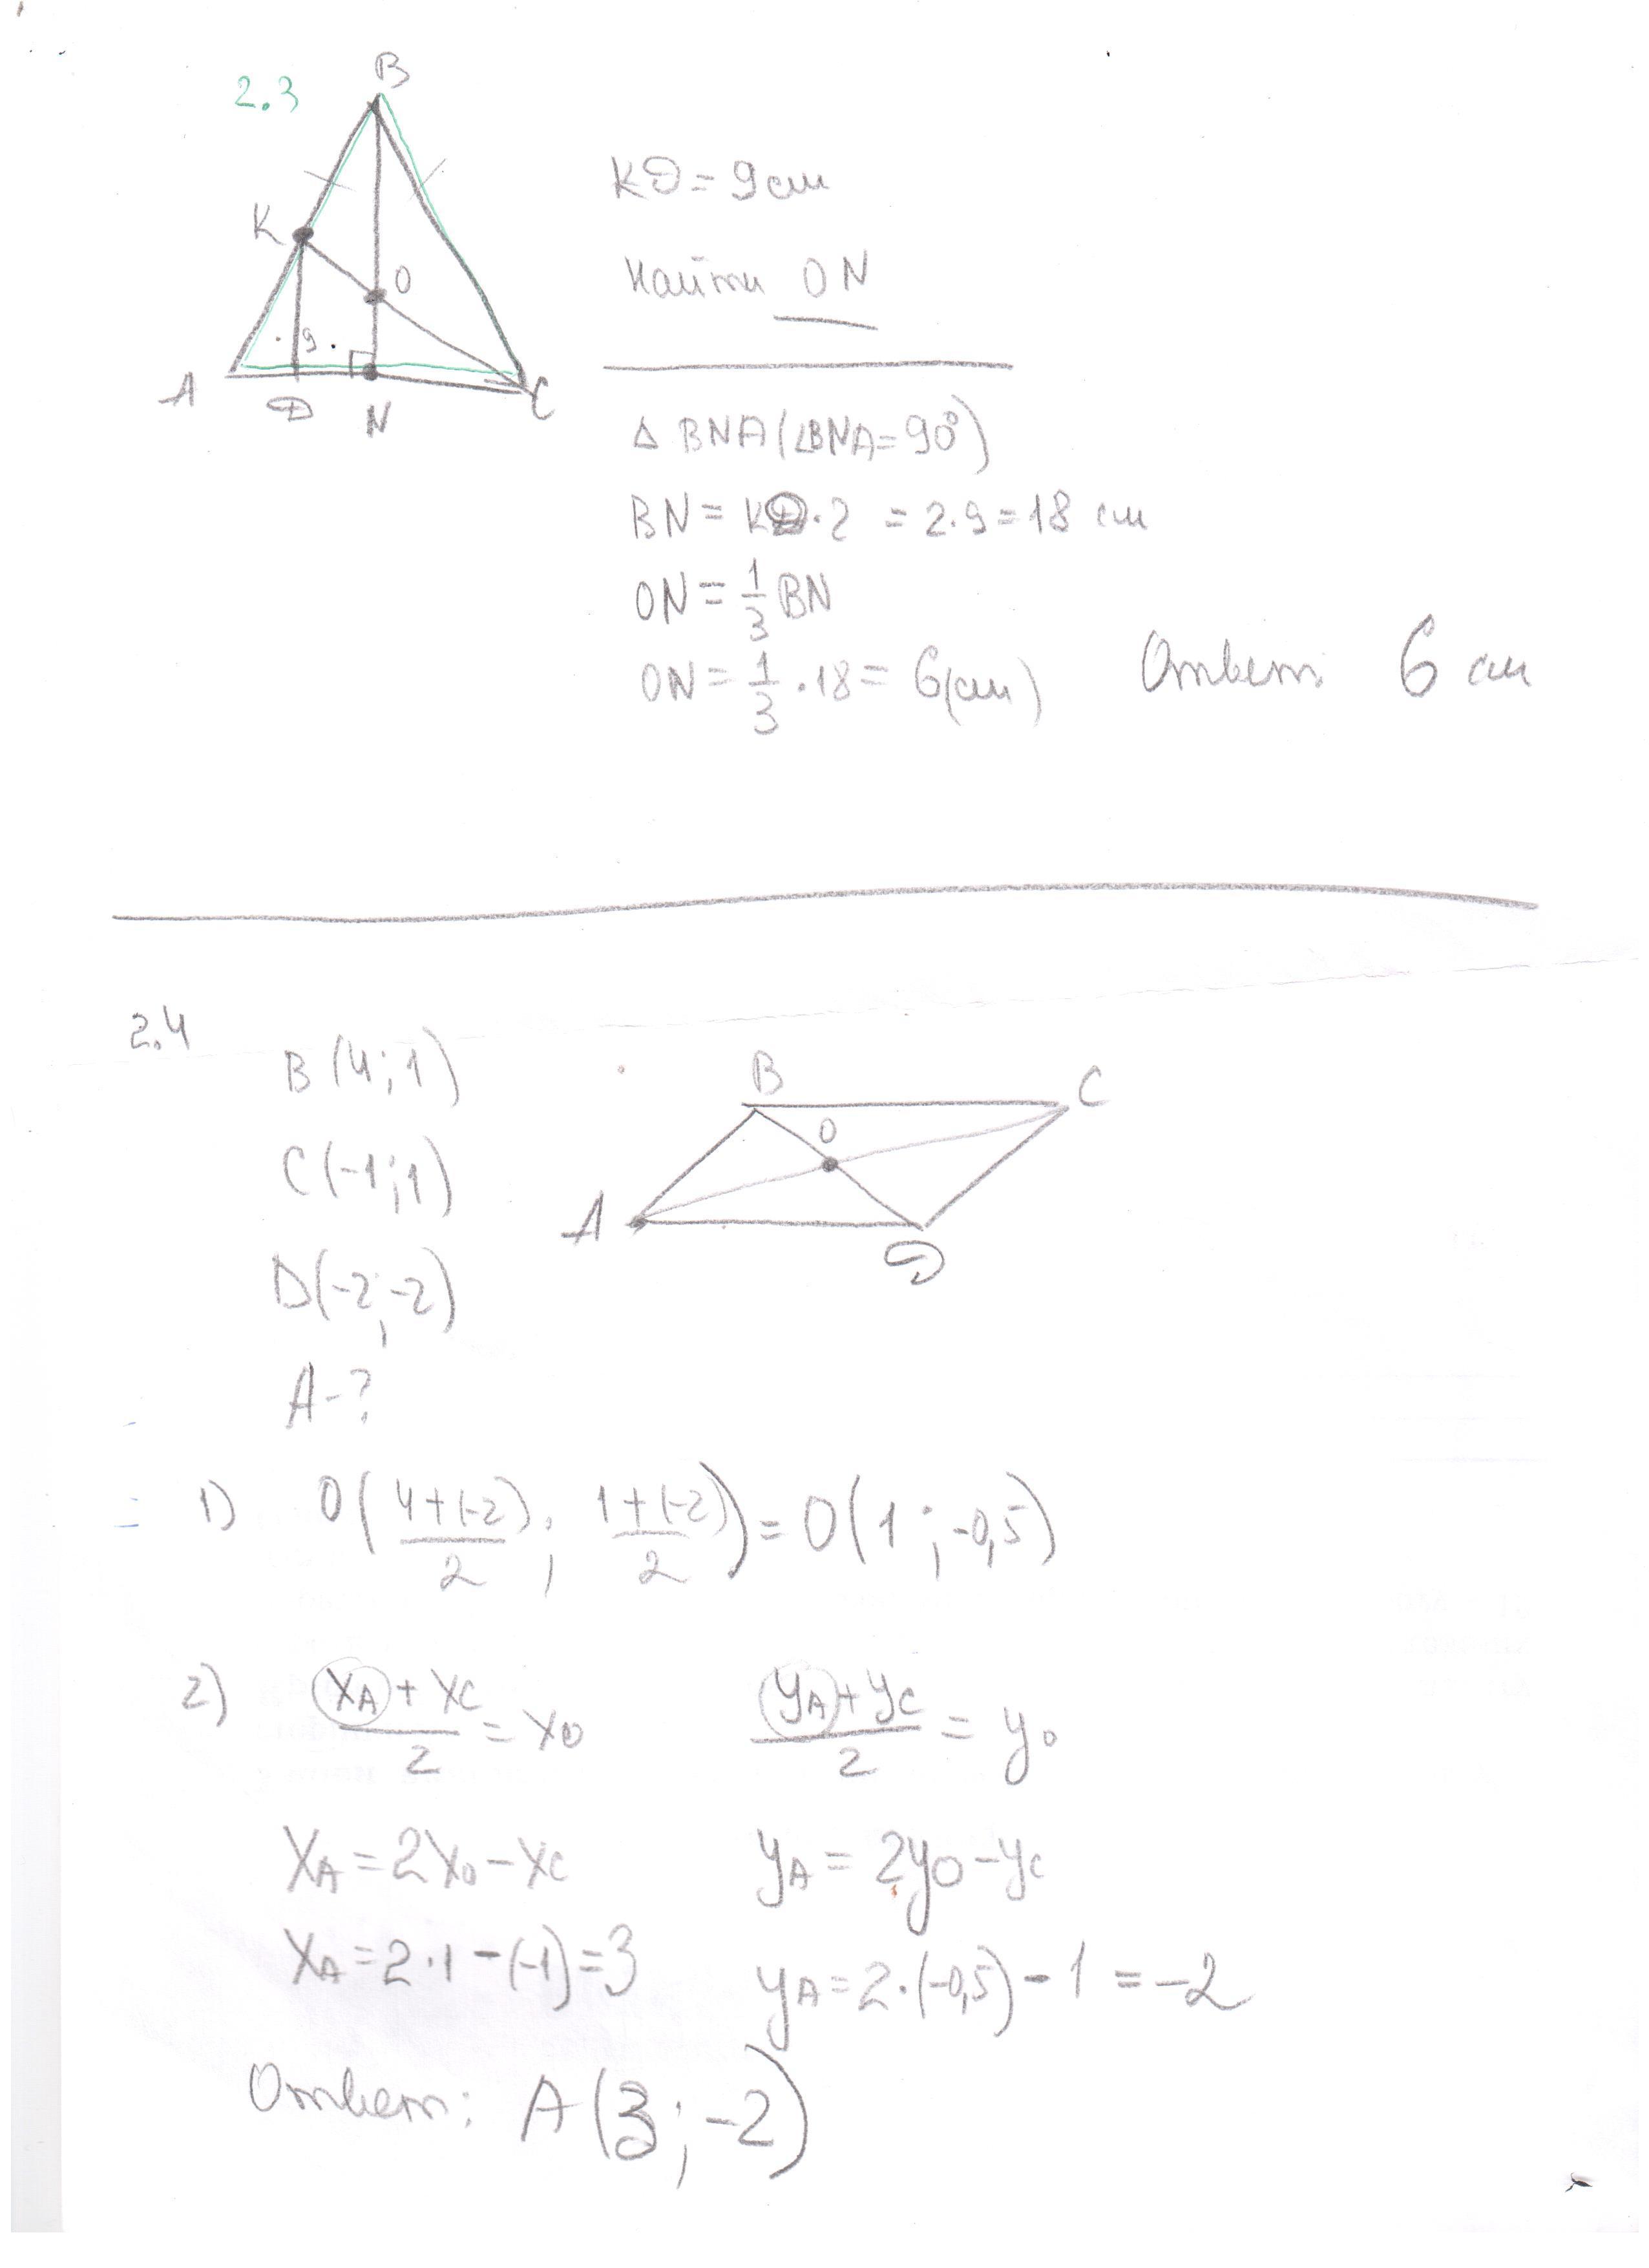 2.3
B
K
O
9
A
D
N
C
KD = 9 см
Найти ON
Δ BNA (∠BNA = 90°)
BN = KD · 2 = 2 · 9 = 18 см
ON = 1/3 BN
ON = 1/3 · 18 = 6 (см) Ответ: 6 см
2.4
B (4; 1)
C (-1; 1)
D (-2; -2)
A - ?
B
C
O
A
D
1) O( (4+(-2))/2 ; (1+(-2))/2 ) = O(1; -0,5)
2) (xA + xC)/2 = xO (yA + yC)/2 = yO
xA = 2xO - xC yA = 2yO - yC
xA = 2·1 - (-1) = 3 yA = 2·(-0,5) - 1 = -2
Ответ: A (3; -2)